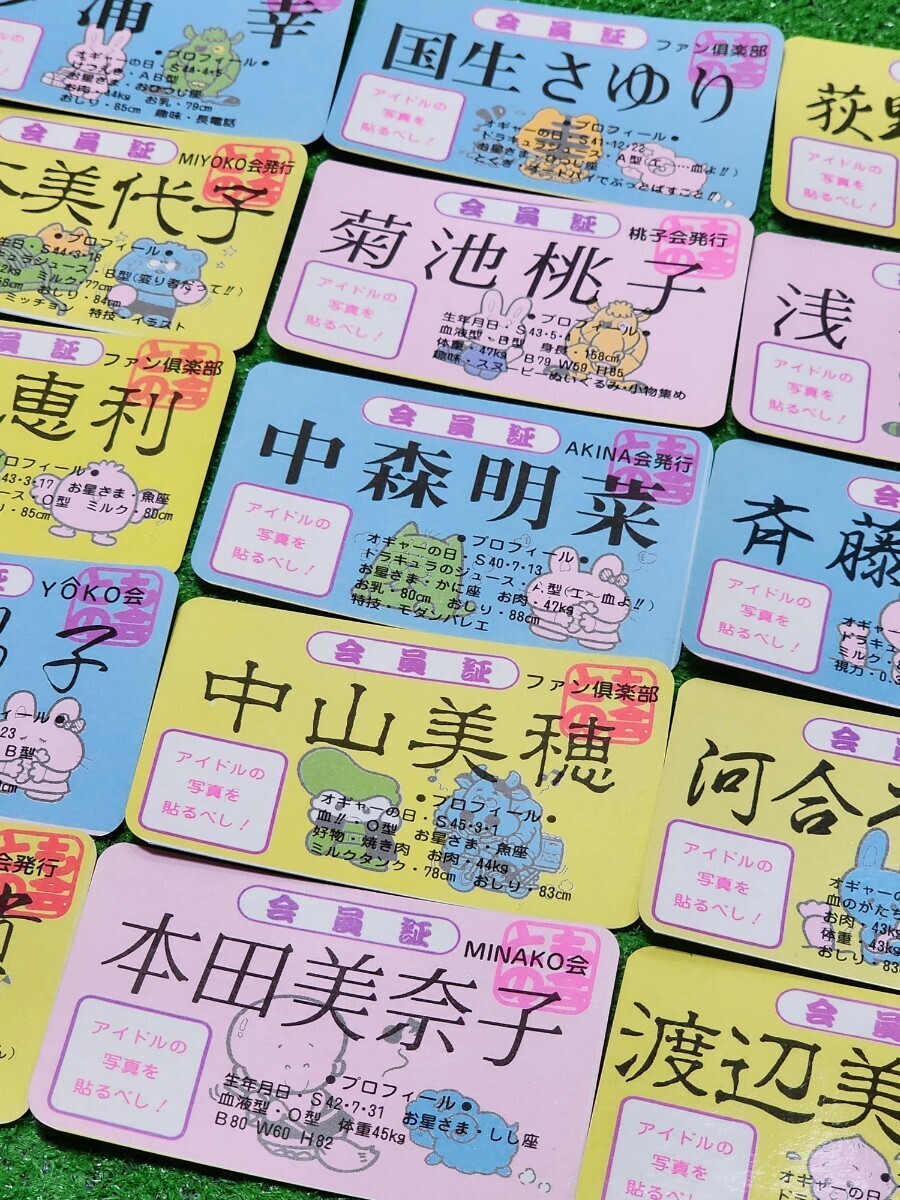 浦 幸
プロフィール
S44・4・5
AB型
お星さま・おひつじ座
お肉・44kg お乳・79cm
おしり・85cm 趣味・長電話
会員証
ファン倶楽部
国生さゆり
アイドルの
写真を
貼るべし!
プロフィール
オギャーの日・S41・12・22
A型(エ〜血よ!!)
荻
アイドルの
写真を
貼るべし!
会員証
MIYOKO会発行
美代子
プロフィール
S44・3・18
B型(変り者だって!!)
ミルク・77cm
おしり・84cm
ミッチョン 特技・イラスト
会員証
桃子会発行
菊池桃子
アイドルの
写真を
貼るべし!
プロフィール
生年月日・S43・5・4
血液型・B型 身長・158cm
体重・47kg B79 W59 H85
趣味・スヌーピーぬいぐるみ・小物集め
浅
アイドルの
写真を
貼るべし!
会員証
ファン倶楽部
恵利
プロフィール
43・3・17 お星さま・魚座
ース・O型 ミルク・80cm
り・85cm
会員証
AKINA会発行
中森明菜
アイドルの
写真を
貼るべし!
プロフィール
オギャーの日・S40・7・13
ドラキュラのジュース・A型(エ〜血よ!!)
お星さま・かに座 お肉・47kg
お乳・80cm おしり・88cm
特技・モダンバレエ
会
斉藤
アイドルの
写真を
貼るべし!
オギャー
ドラキュラ
ミルク・8
視力・0.3
証
YÔKO会
子
フィール
23
B型
会員証
ファン倶楽部
中山美穂
アイドルの
写真を
貼るべし!
プロフィール
オギャーの日・S45・3・1
血!!・O型 お星さま・魚座
好物・焼き肉 お肉・44kg
ミルクタンク・78cm おしり・83cm
会員
河合
アイドルの
写真を
貼るべし!
オギャーの
血のかたち
お肉・43kg
体重・43kg
おしり・83
会発行
会員証
MINAKO会
本田美奈子
アイドルの
写真を
貼るべし!
プロフィール
生年月日・S42・7・31
血液型・O型 体重45kg お星さま・しし座
B80 W60 H82
会員
渡辺美
アイドルの
写真を
貼るべし!
オギャーの日
ドラキ